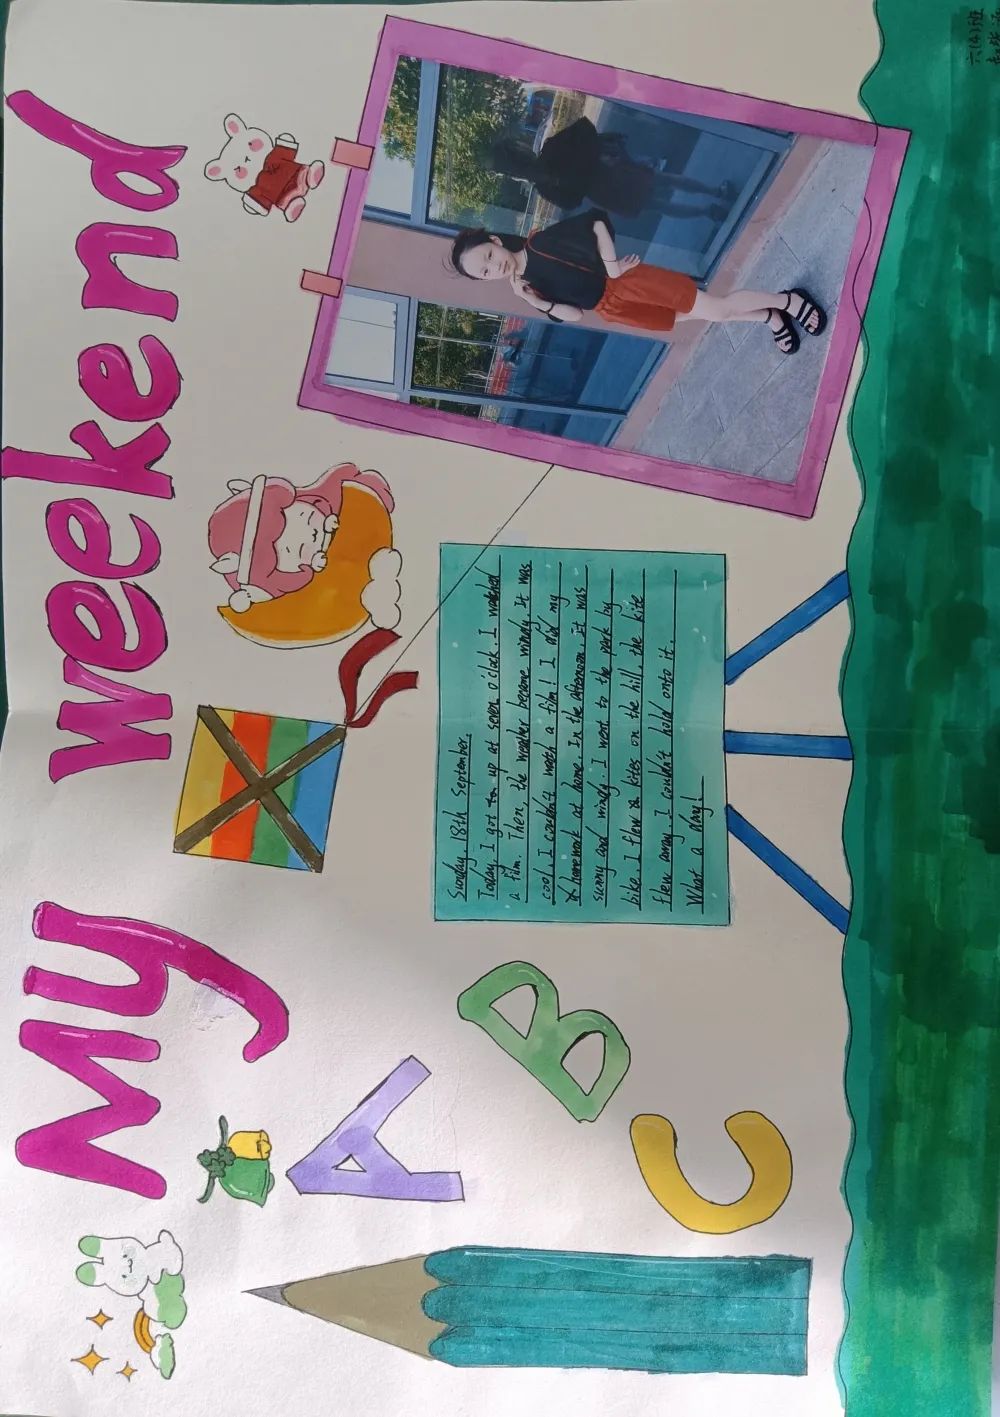 My weekend
A
B
C
Sunday, 18th September.
Today, I got up at seven o'clock. I watched
a film. Then, the weather became windy. It was
cool. I couldn't watch a film! I did my
homework at home. In the afternoon, it was
sunny and windy. I went to the park by
bike. I flew kites on the hill, the kite
flew away. I couldn't hold onto it.
What a day!
六(4)班